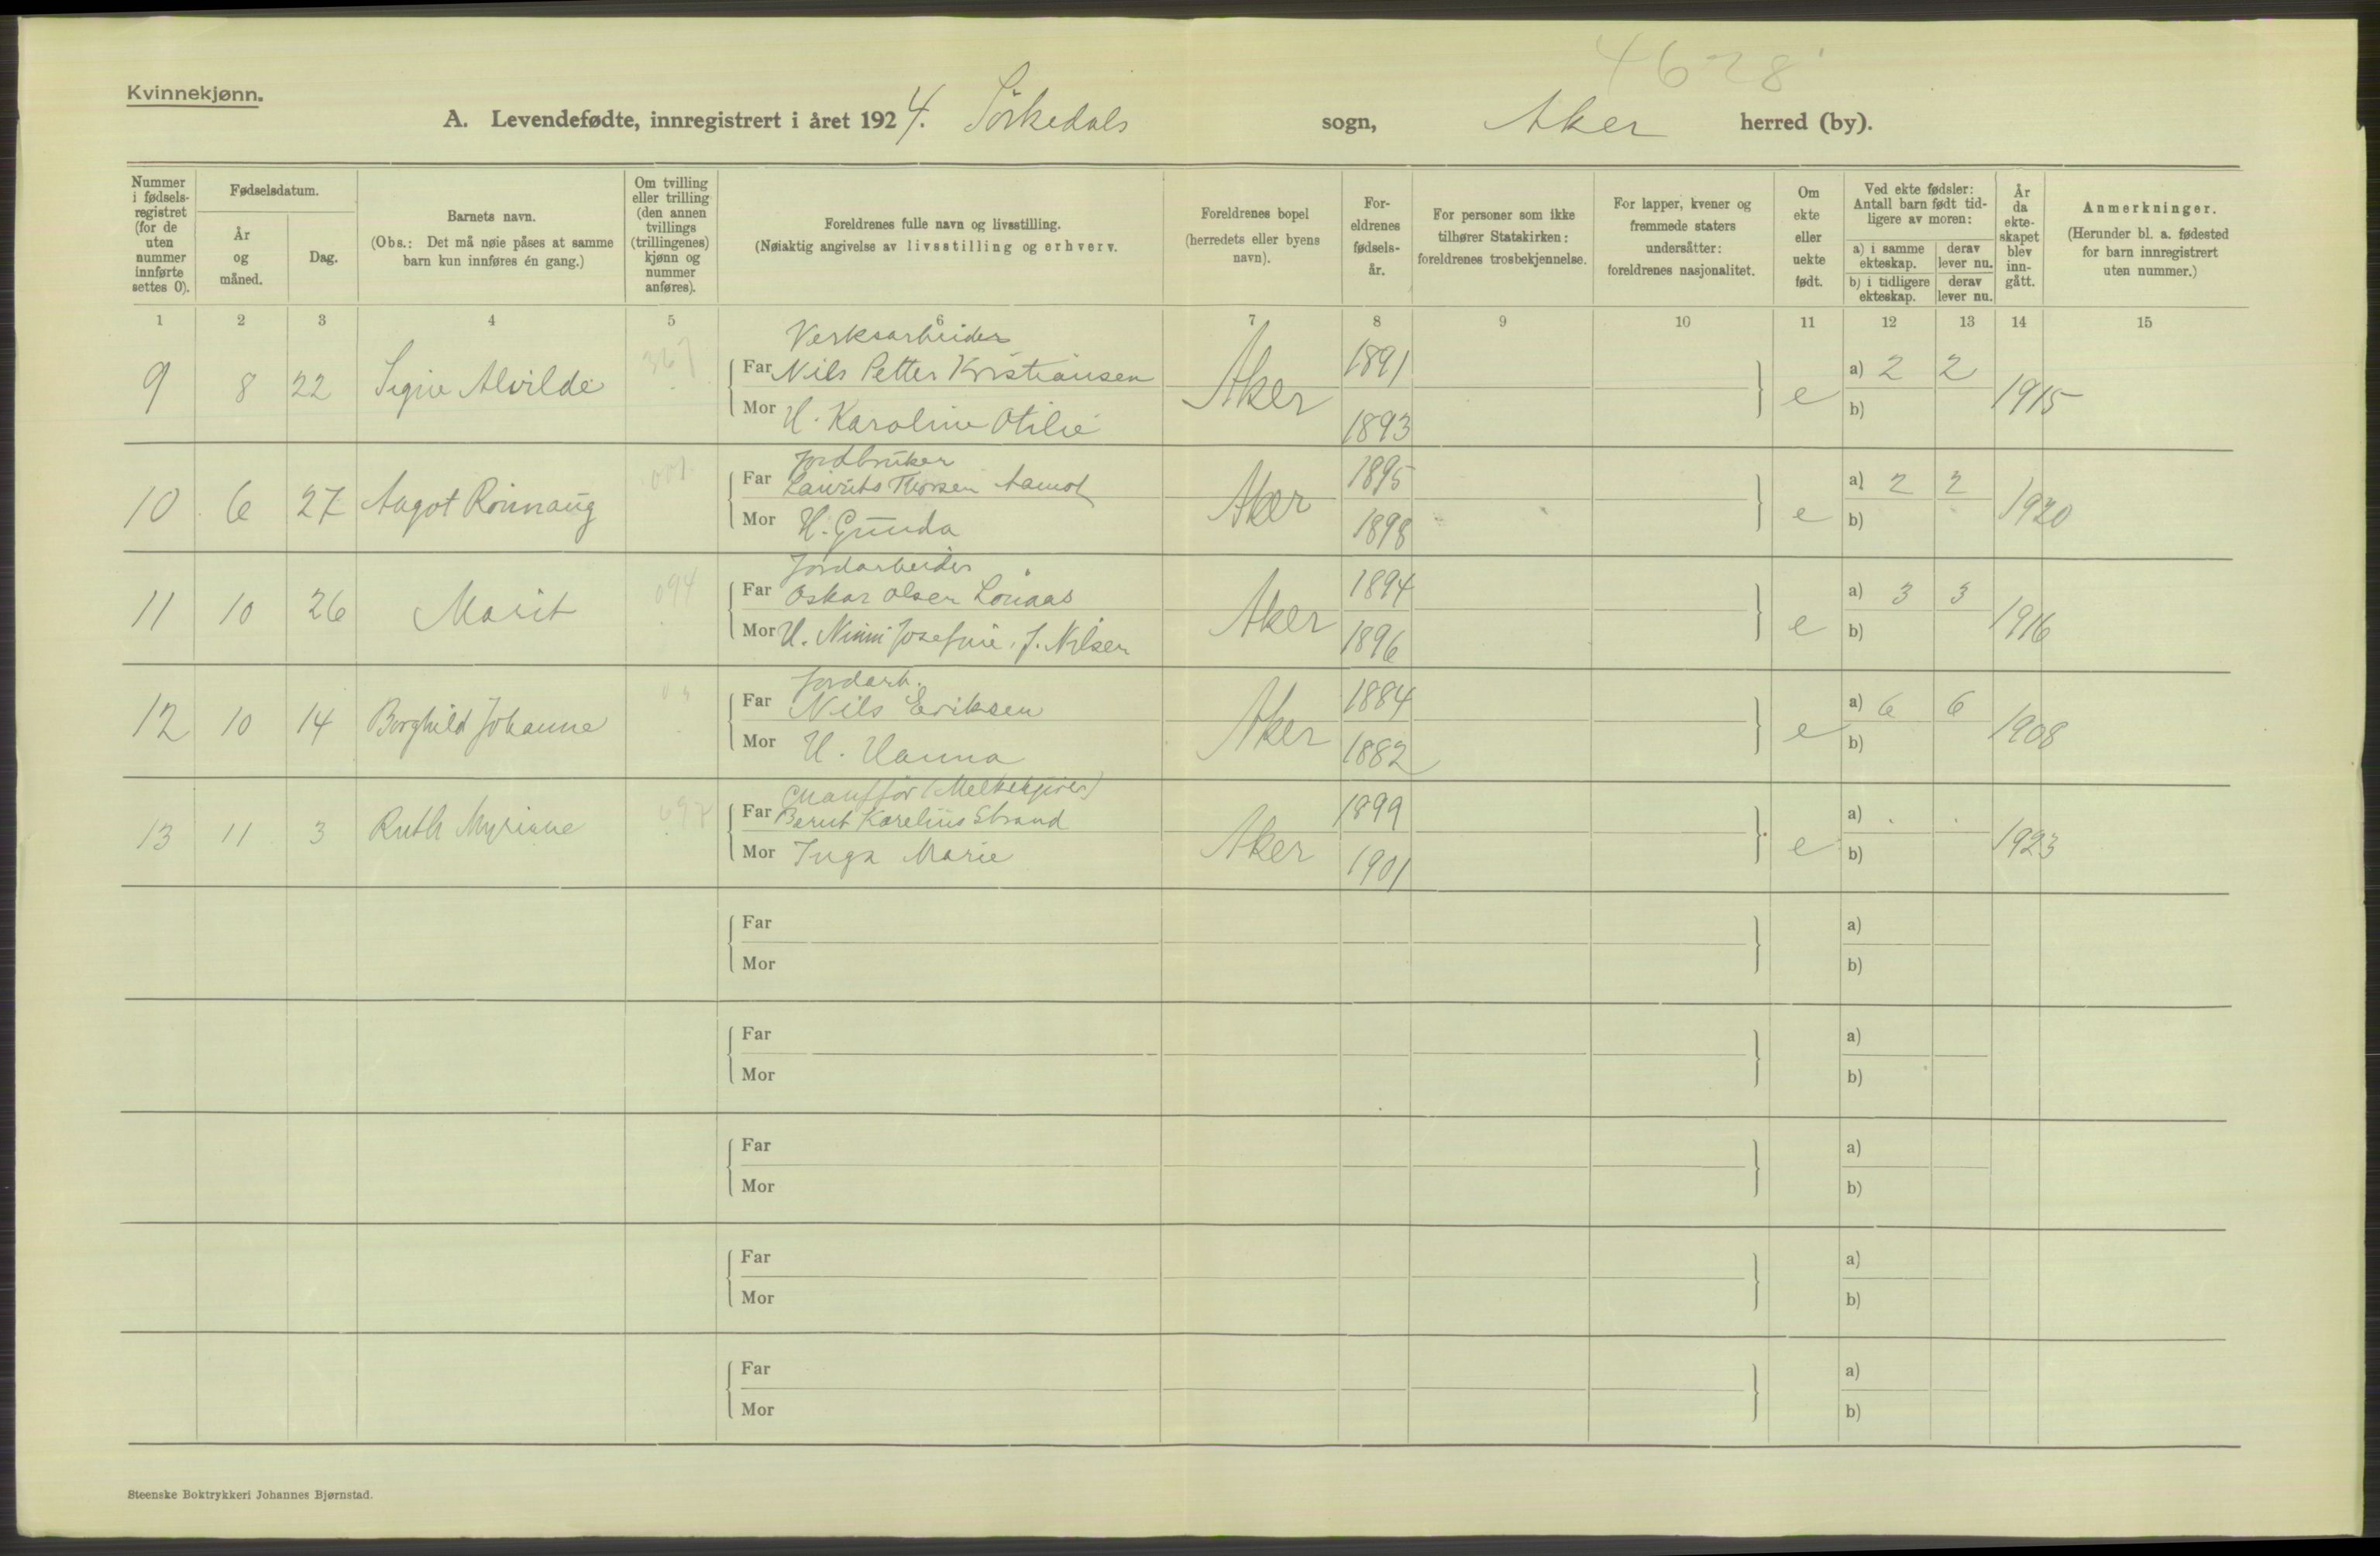 4628
Kvinnekjønn.
A. Levendefødte, innregistrert i året 1924. Sörkedals sogn, Aker herred (by).
Nummer i fødsels-registret (for de uten nummer innførte settes 0).
Fødselsdatum.
År og måned.
Dag.
Barnets navn.
(Obs.: Det må nøie påses at samme barn kun innføres én gang.)
Om tvilling eller trilling (den annen tvillings (trillingenes) kjønn og nummer anføres).
Foreldrenes fulle navn og livsstilling.
(Nøiaktig angivelse av livsstilling og erhverv.
Foreldrenes bopel (herredets eller byens navn).
For-eldrenes fødsels-år.
For personer som ikke tilhører Statskirken: foreldrenes trosbekjennelse.
For lapper, kvener og fremmede staters undersåtter: foreldrenes nasjonalitet.
Om ekte eller uekte født.
Ved ekte fødsler: Antall barn født tid-ligere av moren:
a) i samme ekteskap.
derav lever nu.
b) i tidligere ekteskap.
derav lever nu.
År da ekte-skapet blev inn-gått.
Anmerkninger.
(Herunder bl. a. fødested for barn innregistrert uten nummer.)
1 2 3 4 5 6 7 8 9 10 11 12 13 14 15
Verksarbeider
9 8 22 Signe Alvilde 367 Far Nils Petter Kristiansen Aker 1891 e a) 2 2 1915
Mor H. Karoline Otilie 1893 b)
Jordbruker
10 6 27 Aagot Rönnaug 001 Far Laurits Thorsen Aamot Aker 1895 e a) 2 2 1920
Mor H. Gunda 1898 b)
Jordarbeider
11 10 26 Marit 094 Far Oskar Olsen Lönaas Aker 1894 e a) 3 3 1916
Mor H. Ninni Josefine, f. Nilsen 1896 b)
Jordarb.
12 10 14 Borghild Johanne Far Nils Eriksen Aker 1884 e a) 6 6 1908
Mor H. Hanna 1882 b)
Chaufför (Melkekjörer)
13 11 3 Ruth Myriane 697 Far Bernt Karelius Strand Aker 1899 e a) . . 1923
Mor Inga Marie 1901 b)
Far a)
Mor b)
Far a)
Mor b)
Far a)
Mor b)
Far a)
Mor b)
Far a)
Mor b)
Steenske Boktrykkeri Johannes Bjørnstad.